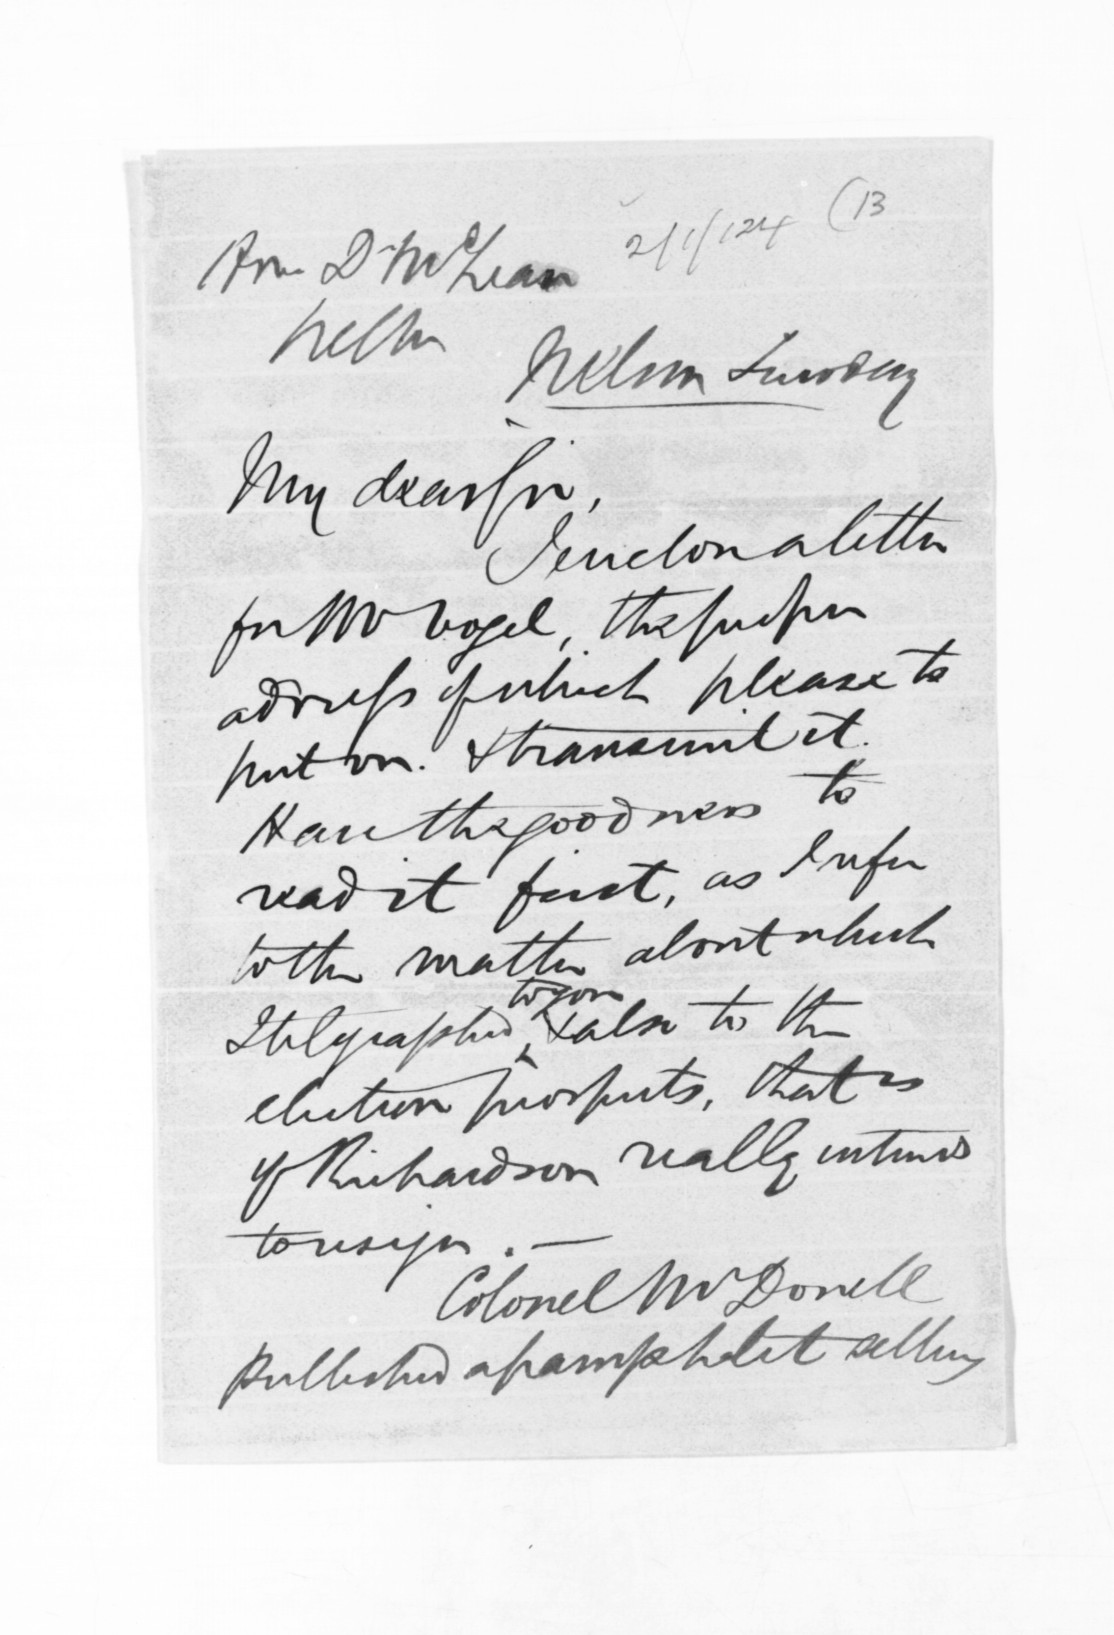 (13
2/1/124
Hon D. McLean
Nelson Sunday
My dear Sir,
I enclose a letter
for Mr Vogel, the proper
address of which please to
put on. & transmit it.
Have the goodness to
read it first, as I refer
to the matter about which
I telegraphed to you & also to the
election prospects, that is
if Richardson really intends
to resign. —
Colonel McDonell
Published a pamphlet selling